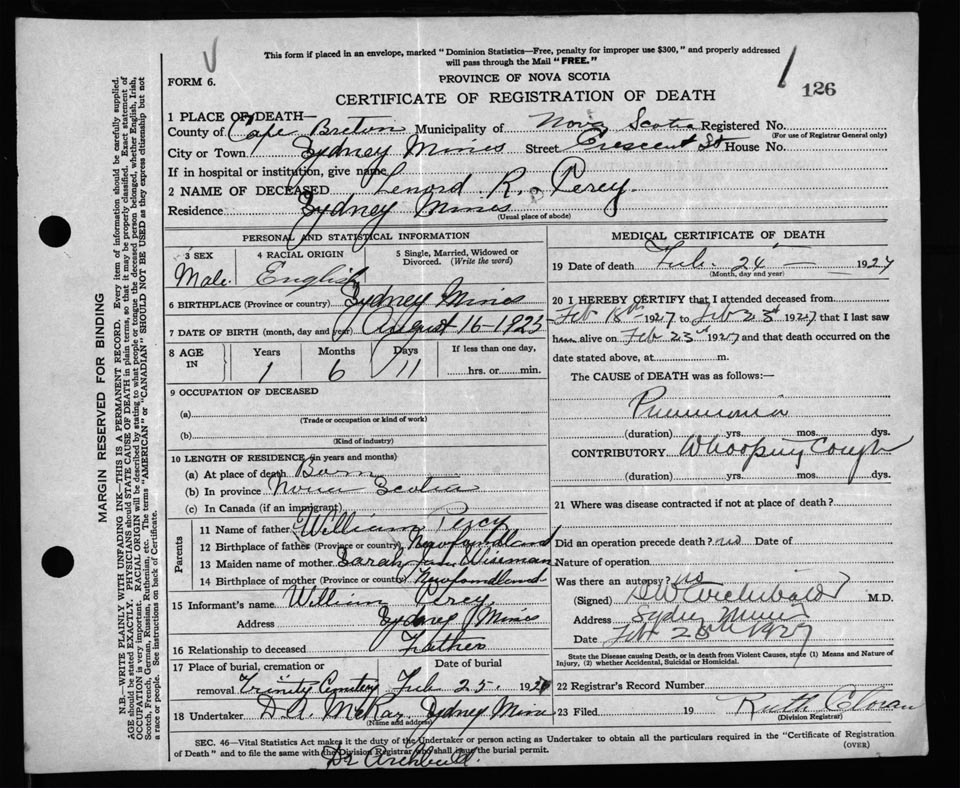 This form if placed in an envelope, marked "Dominion Statistics—Free, penalty for improper use $300," and properly addressed
will pass through the Mail "FREE."
FORM 6.
PROVINCE OF NOVA SCOTIA
126
CERTIFICATE OF REGISTRATION OF DEATH
1 PLACE OF DEATH—
County of Cape Breton Municipality of Nova Scotia Registered No.
(For use of Registrar General only)
City or Town Sydney Mines Street Crescent St House No.
If in hospital or institution, give name
2 NAME OF DECEASED Lenord R. Percy.
Residence Sydney Mines
(Usual place of abode)
PERSONAL AND STATISTICAL INFORMATION
3 SEX 4 RACIAL ORIGIN 5 Single, Married, Widowed or
Divorced. (Write the word)
Male. English
6 BIRTHPLACE (Province or country) Sydney Mines
7 DATE OF BIRTH (month, day and year) August 16-1925
8 AGE IN Years Months Days If less than one day,
1 6 11 hrs. or min.
9 OCCUPATION OF DECEASED
(a)
(Trade or occupation or kind of work)
(b)
(Kind of industry)
10 LENGTH OF RESIDENCE (in years and months)
(a) At place of death Born
(b) In province Nova Scotia
(c) In Canada (if an immigrant)
Parents
11 Name of father William Percy
12 Birthplace of father (Province or country) Newfoundland
13 Maiden name of mother Sarah Jane Wiseman
14 Birthplace of mother (Province or country) Newfoundland
15 Informant's name William Percy
Address Sydney Mines
16 Relationship to deceased Father
17 Place of burial, cremation or Date of burial
removal Trinity Cemetery Feb 25. 1927
18 Undertaker D. A. McKay Sydney Mines
(Name and address)
MEDICAL CERTIFICATE OF DEATH
19 Date of death Feb. 24 — 1927
(Month, day and year)
20 I HEREBY CERTIFY that I attended deceased from
Feb 18th 1927 to Feb 23rd 1927 that I last saw
him alive on Feb 23rd 1927 and that death occurred on the
date stated above, at m.
The CAUSE of DEATH was as follows:—
Pneumonia
(duration) yrs. mos. dys.
CONTRIBUTORY Whooping Cough
(duration) yrs. mos. dys.
21 Where was disease contracted if not at place of death?
Did an operation precede death? no Date of
Nature of operation
Was there an autopsy? no
(Signed) D W Archibald M.D.
Address Sydney Mines
Date Feb 25th 1927
State the Disease causing Death, or in death from Violent Causes, state (1) Means and Nature of
Injury, (2) whether Accidental, Suicidal or Homicidal.
22 Registrar's Record Number
23 Filed 19 Ruth Cloran
(Division Registrar)
SEC. 46—Vital Statistics Act makes it the duty of the Undertaker or person acting as Undertaker to obtain all the particulars required in the "Certificate of Registration
of Death" and to file the same with the Division Registrar who shall issue the burial permit.
(OVER)
Dr Archibald.
MARGIN RESERVED FOR BINDING
N.B.—WRITE PLAINLY WITH UNFADING INK—THIS IS A PERMANENT RECORD. Every item of information should be carefully supplied.
AGE should be stated EXACTLY. PHYSICIANS should STATE CAUSE OF DEATH in plain terms, so that it may be properly classified. Exact statement of
OCCUPATION is very important. RACIAL ORIGIN will be described by stating to what people or tongue the deceased person belonged, whether English, Irish,
Scotch, French, German, Russian, Ruthenian, etc. The terms "AMERICAN" or "CANADIAN" SHOULD NOT BE USED as they express citizenship but not
a race or people. See instructions on back of Certificate.